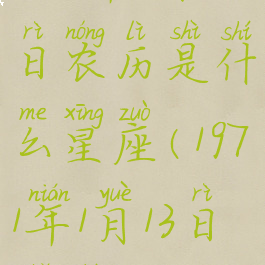 rì nóng lì shì shí
日农历是什
me xīng zuò
么星座(197
nián yuè rì
1年1月13日